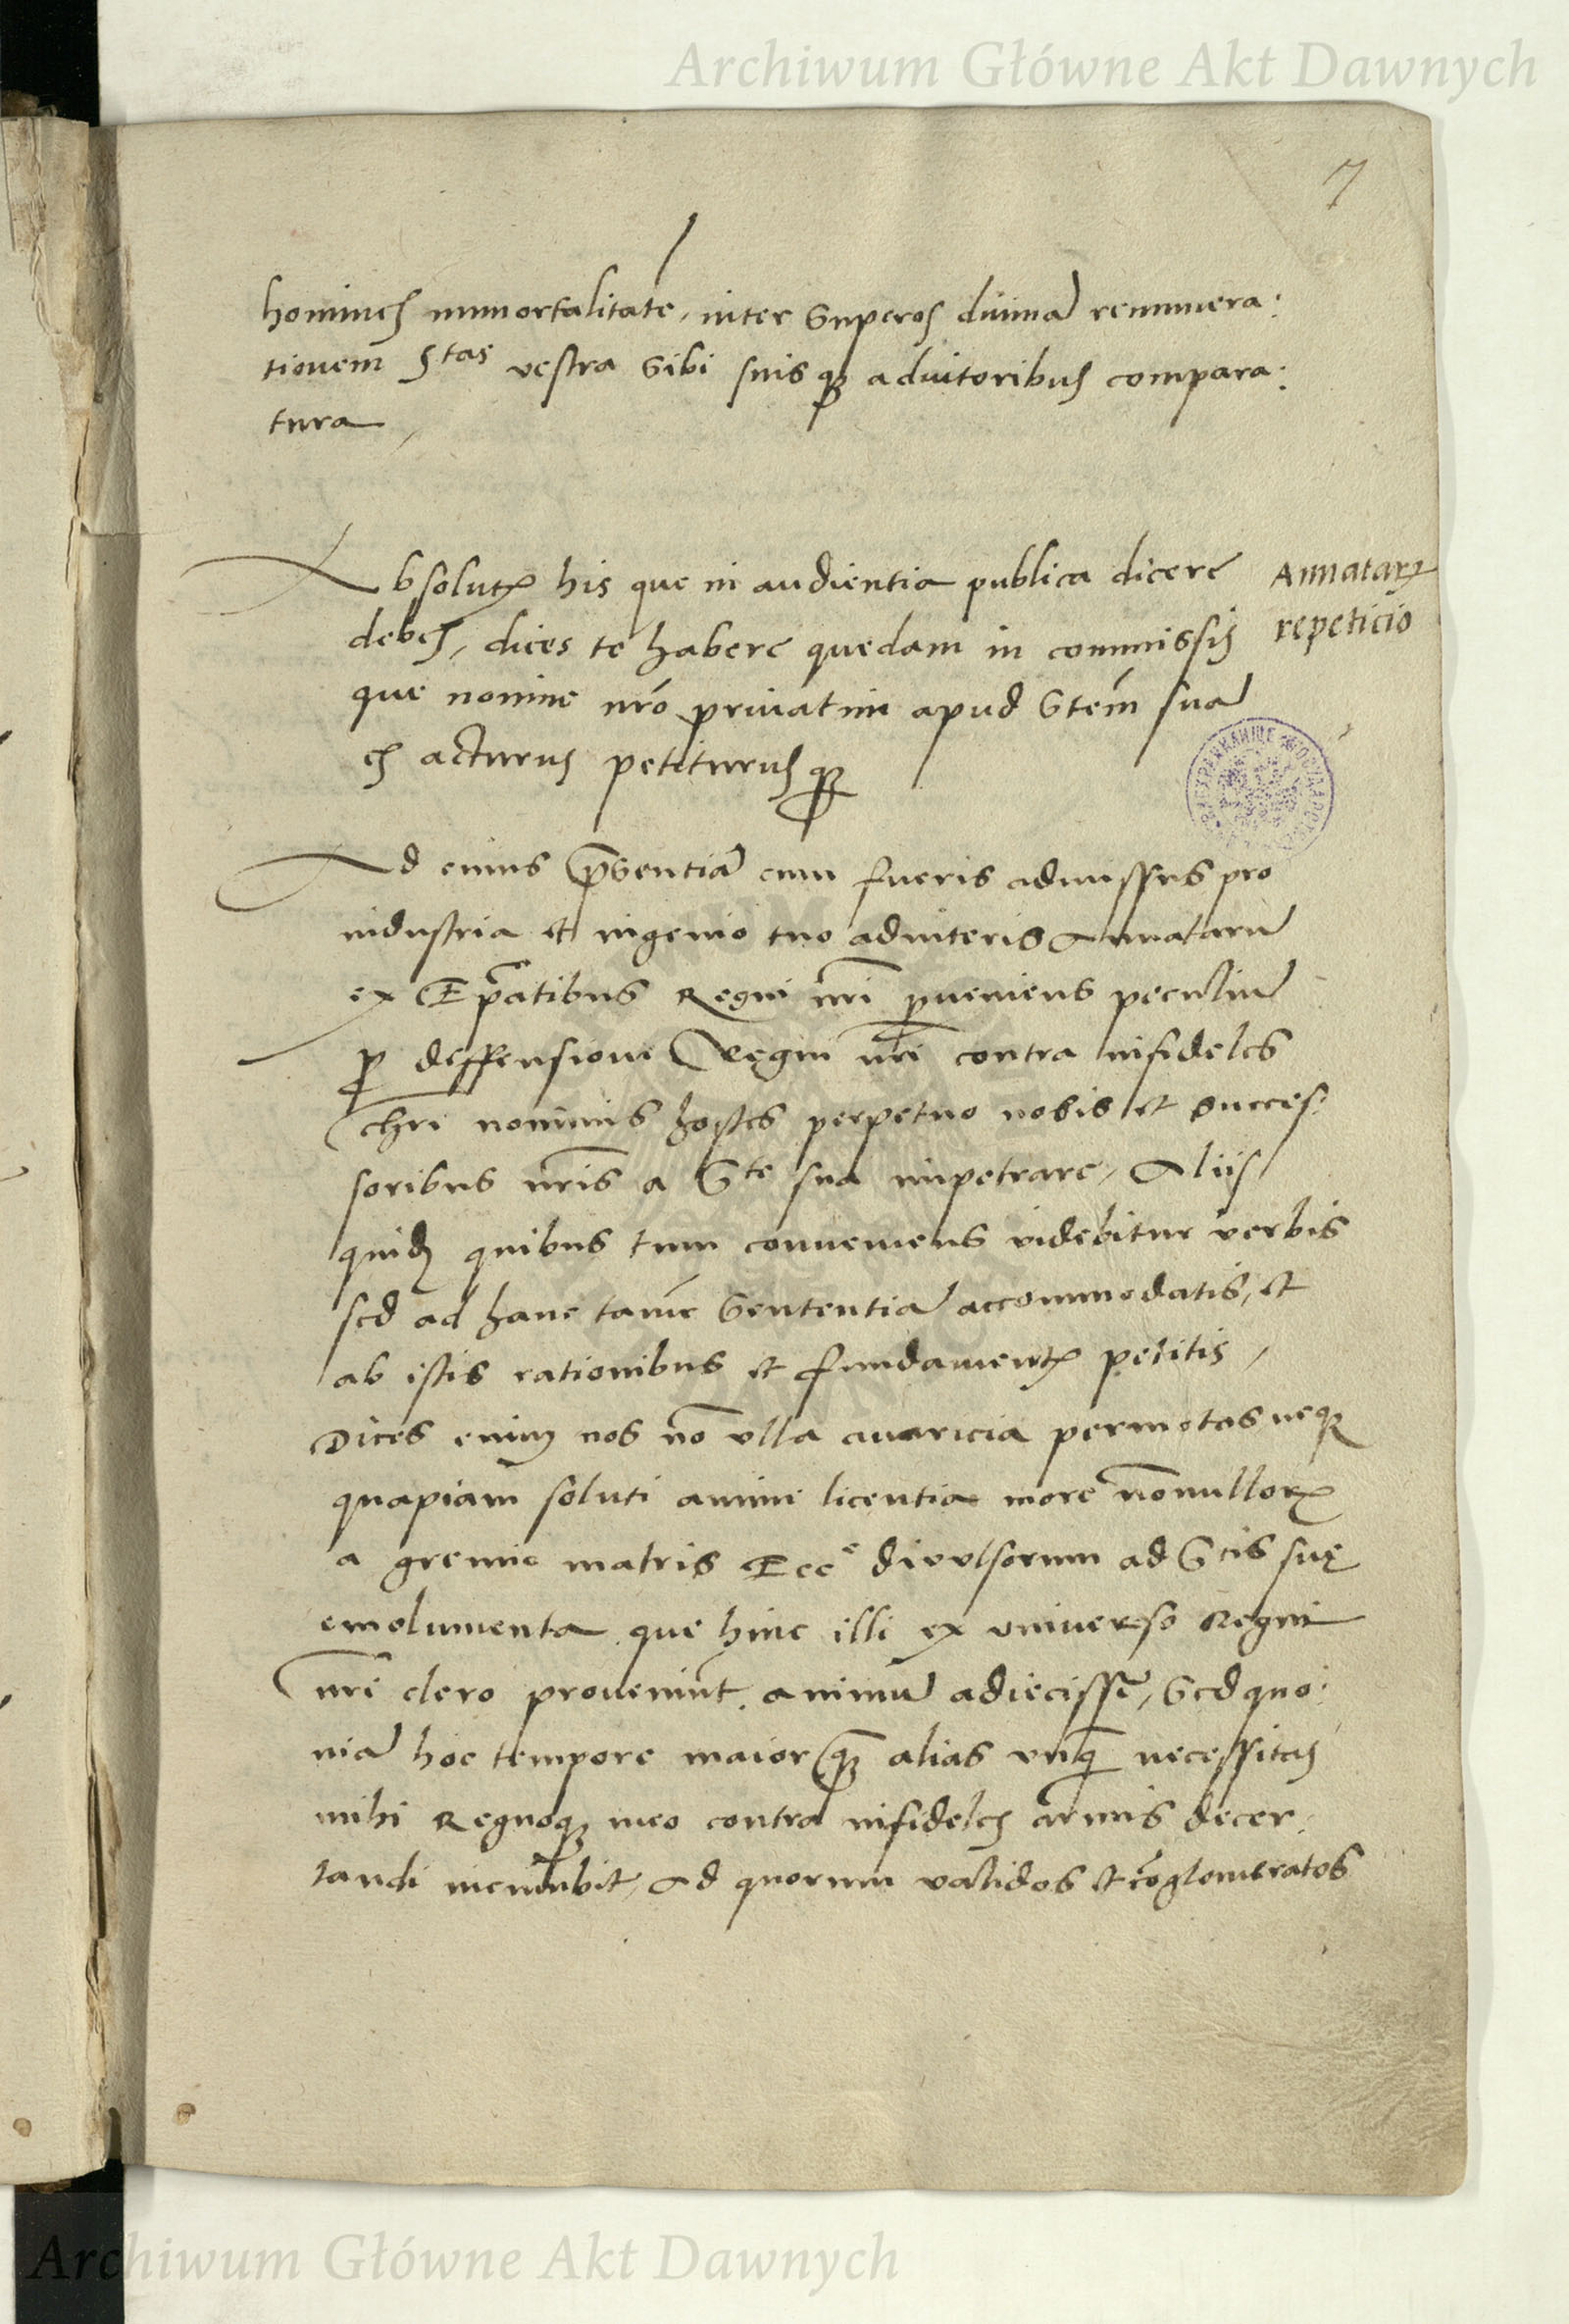 Archiwum Główne Akt Dawnych
7
homines immortalitatē, inter superos divinā remunera:
tionem Stas vestra sibi suisqꝫ adiutoribus compara:
tura
Absolutꝭ his que in audientia publica dicere
debes, dices te habere quedam in commissis
que nomine nr̄o privatim apud Stem̄ suā
es acturus petiturusqꝫ
Annatarꝝ
repeticio
Ad cuius p̄sentiā cum fueris admissus pro
industria et ingenio tuo adniteris Annatarū
ex Ep̄atibus Regni nr̄i ꝓveniens peculiū
ꝓ deffensione Regni nr̄i contra infideles
chr̄i nominis hostes perpetuo nobis et succes:
soribus nr̄is a Ste sua impetrare, Aliis
quidē quibus tum conveniens videbitur verbis
sed ad hanc tamē sententiā accommodatis, et
ab istis rationibus et fundamentꝭ petitis,
Dices enim nos nō ulla avaricia permotos neqꝫ
quapiam soluti animi licentia more nōnullorꝝ
a gremio matris Ecce divulsorum ad Stis suę
emolumenta que hinc illi ex universo Regni
nr̄i clero proveniūt animū adiecisse, Sed quo:
niā hoc tempore maior qꝫ alias unqꝫ necessitas
mihi Regnoqꝫ meo contra infideles armis decer:
tandi incumbit, Ad quorum validos et cōglomeratos
Archiwum Główne Akt Dawnych